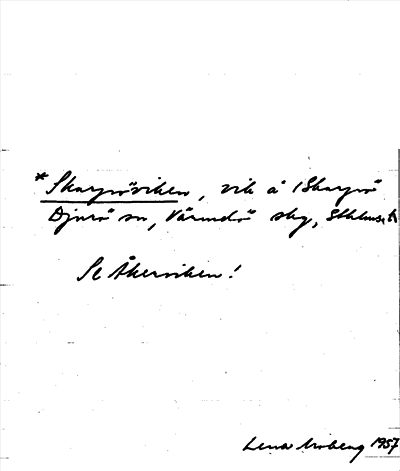 * Skarpöviken, vik å Skarpö
Djurö sn, Värmdö skg, Sthlms l.
Se Åkerviken!
Lena Moberg 1957